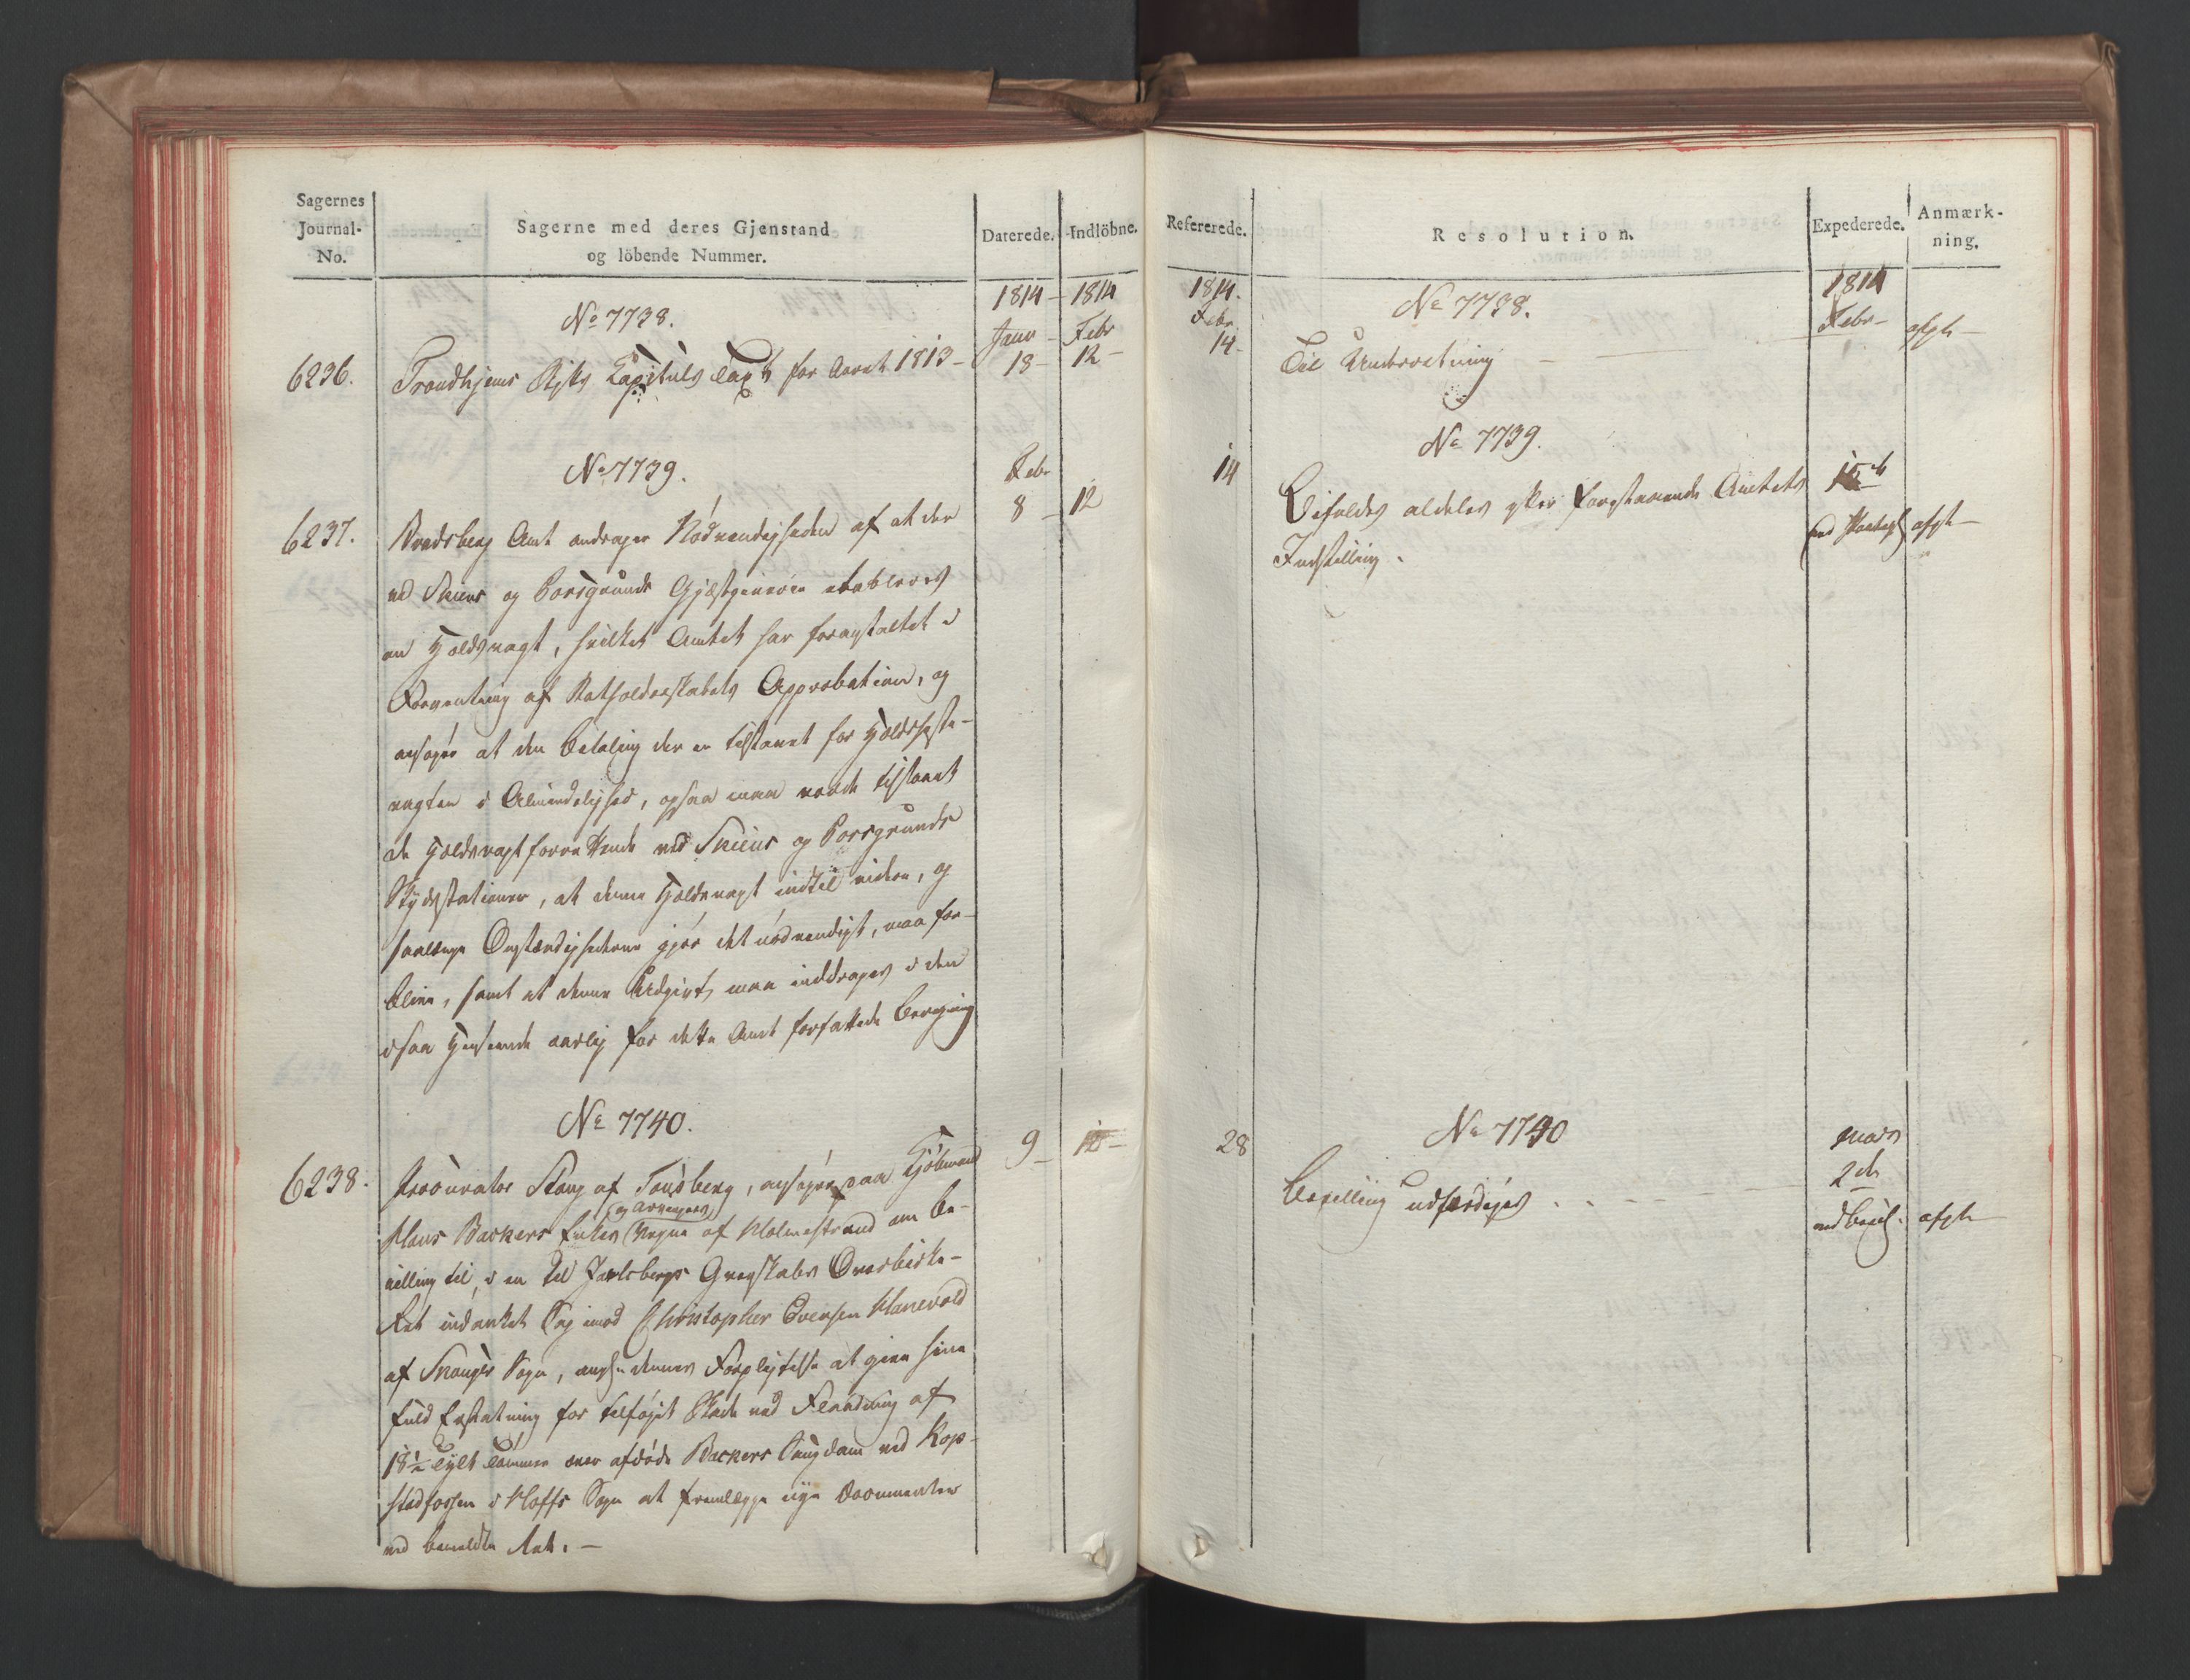 Sagernes
Journal-
No.
Sagerne med deres Gjenstand
og löbende Nummer.
Daterede.
Indlöbne.
1814 - 1814
No 7738.
Janv - Febr
6236. Trondhjems Stifts Capituls Taxt for Aaret 1813 - 18 - 12 -
No 7739.
Febr
6237. Bradsberg Amt andrager Nödvendigheden af at der 8 - 12
ved Skiens og Porsgrunds Gjæstgiverier etableres
en Holdsvagt, hvilket Amtet har foranstaltet i
Forventning af Statholderskabets Approbation, og
ansøger at den Betaling der er tilstaaet for Holdsheste-
vagten i Almindelighed, ogsaa maa vorde tilstaaet
de Holdsvagt forrettende ved Skiens og Porsgrunds
Skydsstationer, at denne Holdsvagt indtil videre, og
saalænge Omstændighederne gjør det nödvendigt, maa for-
blive, samt at denne Udgivt maa inddrages i den
i saa Henseende aarlig for dette Amt forfattede Beregning
No 7740.
6238. Procurator Stang af Tønsberg, ansøger paa Kjøbmand 9 -
og Arvingers
Hans Backers Enkes Vegne af Holmestrand om Be-
villing til, i en til Jarlsbergs Grevskabs Overbirke-
Ret indanket Sag imod Christopher Evensen Hanevold
af Skougers Sogn, angde dennes Forpligtelse at give sine
fuld Erstatning for tilføjet Skade ved Flaadning af
18½ Tylt Tømmer over afdøde Backers Saugdam ved Kop-
stadfossen i Hoffs Sogn at fremlægge nye Documenter
ved bemeldte Ret. -
Refererede.
Resolution.
Expederede.
Anmærk-
ning.
1814.
Febr
14 -
No 7738.
1814
Febr -
Til Underretning - afgh -
No 7739.
14
Bifaldes aldeles efter foregstaaende Amtets
Indstilling. afgh -
No 7740
28
Marts
2de
Bevilling udfærdiges . . - - -
afgh -